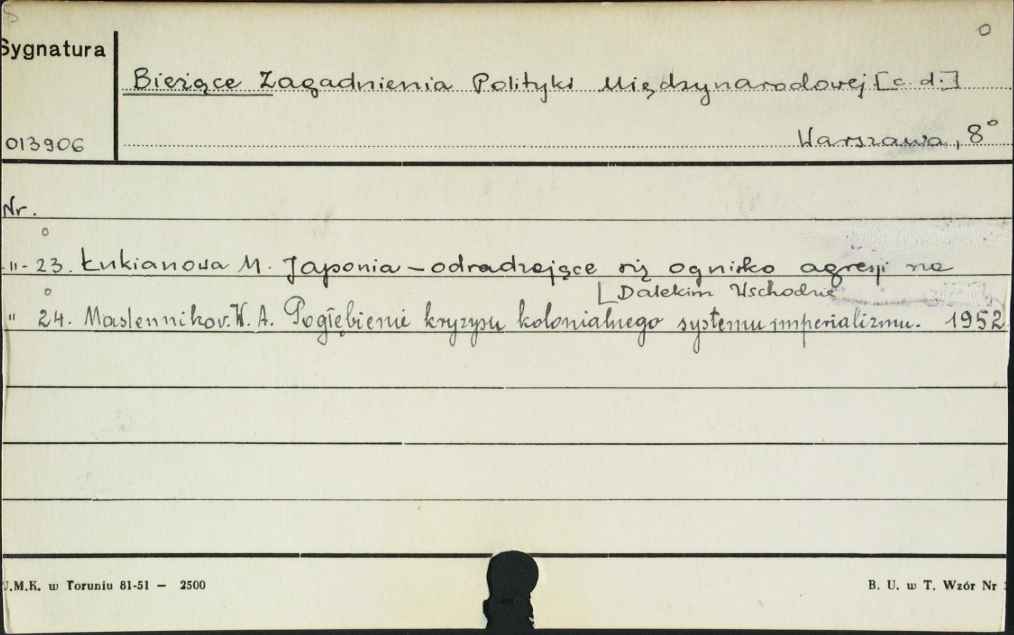 Sygnatura
Bieżące Zagadnienia Polityki Międzynarodowej [c. d.]
013906
Warszawa, 8°
Nr.
-"- 23. Łukianowa M. Japonia — odradzające się ognisko agresji na
[Dalekim Wschodzie
" 24. Maslennikov. W. A. Pogłębienie kryzysu kolonialnego systemu imperializmu. 1952
U.M.K. w Toruniu 81-51 — 2500
B. U. w T. Wzór Nr